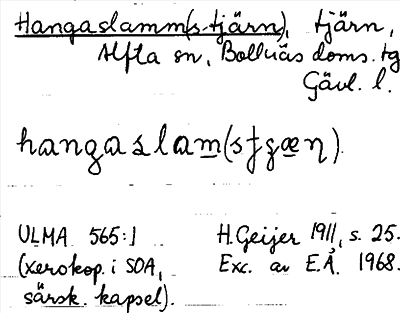 Hangaslamm(s-tjärn), tjärn,
Alfta sn, Bollnäs doms. tg
Gävl. l.
hangaslam(stʃæɳ).
ULMA 565:1
(xerokop. i SOA,
särsk. kapsel).
H. Geijer 1911, s. 25.
Exc. av E.Å. 1968.